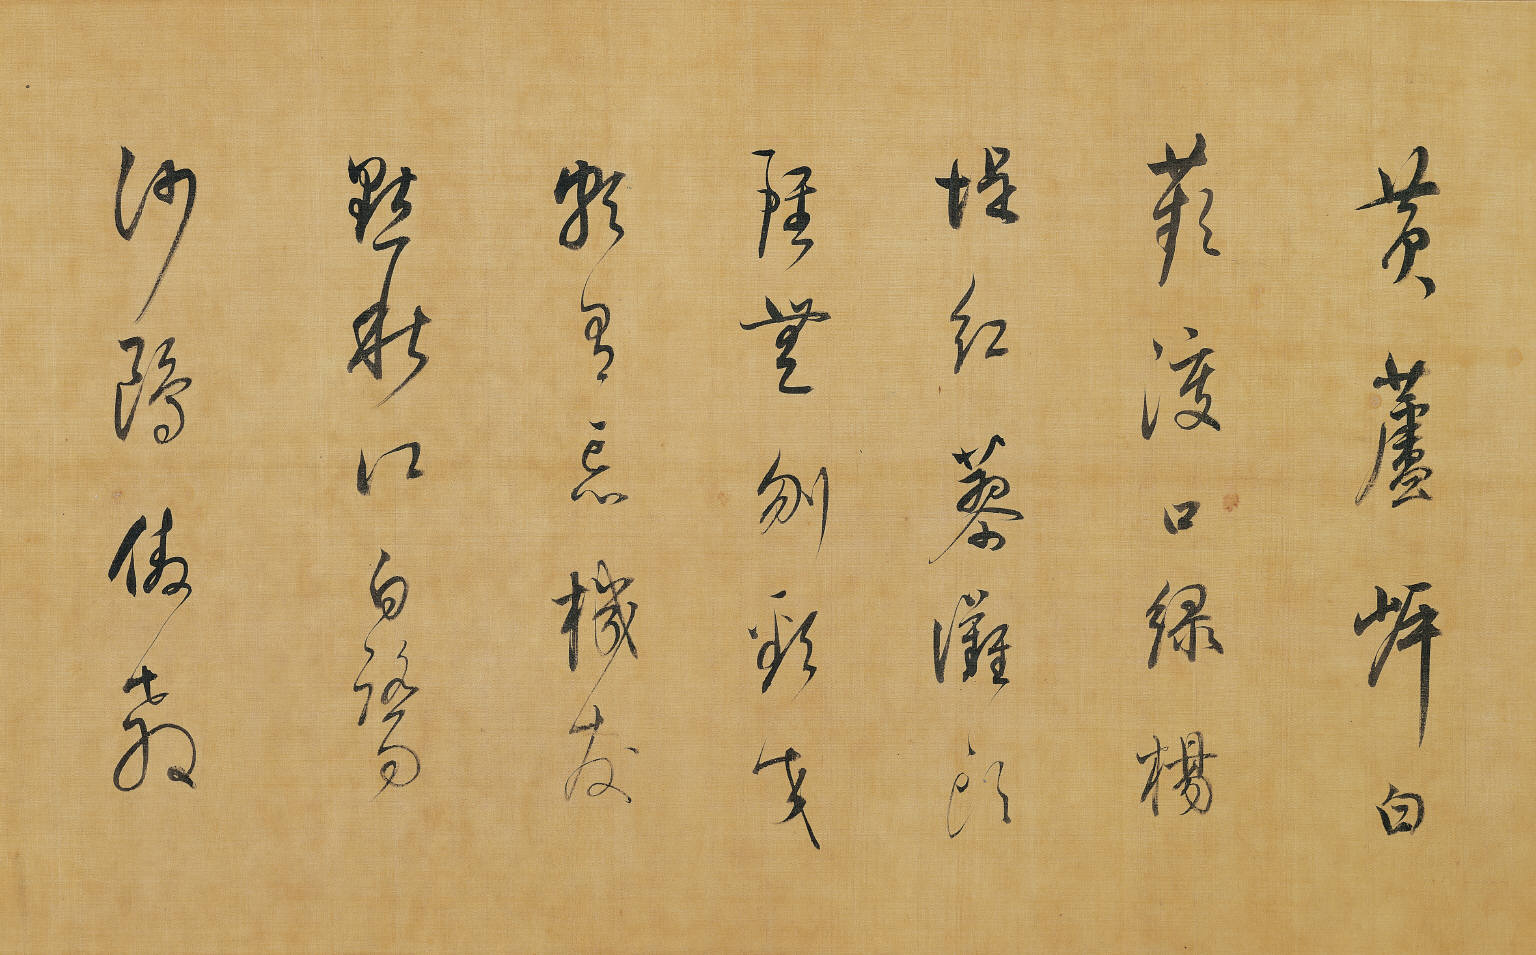 黃蘆岸白
蘋渡口綠楊
堤紅蓼灘頭
雖無刎頸交
頗有忘機友
點秋江白鷺
沙鷗傲殺